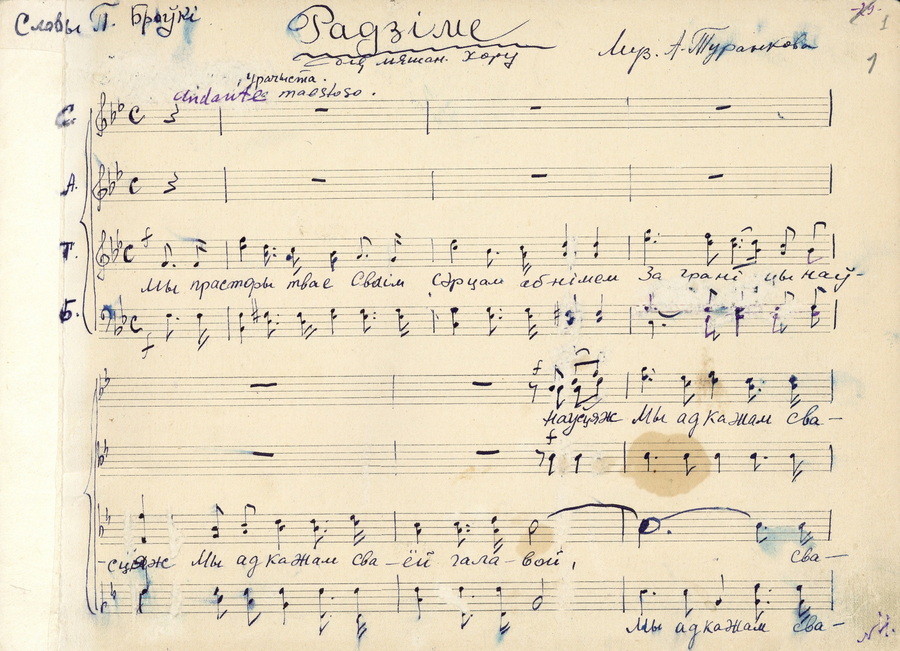 Словы П. Броўкі
Радзіме
для мяшан. хору
Муз. А. Туранкова
1
1
Урачыста.
Andante maestoso.
С.
А.
Т.
Б.
f
Мы прасторы твае Сваім сэрцам абнімем За грані цы наў-
f
f
наўсцяж Мы адкажам сва-
f
-сцяж Мы адкажам сва-ёй гала-вой, сва-
Мы адкажам сва-